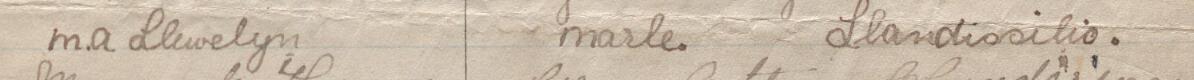 m.a Llewelyn marle. Llandissilio.